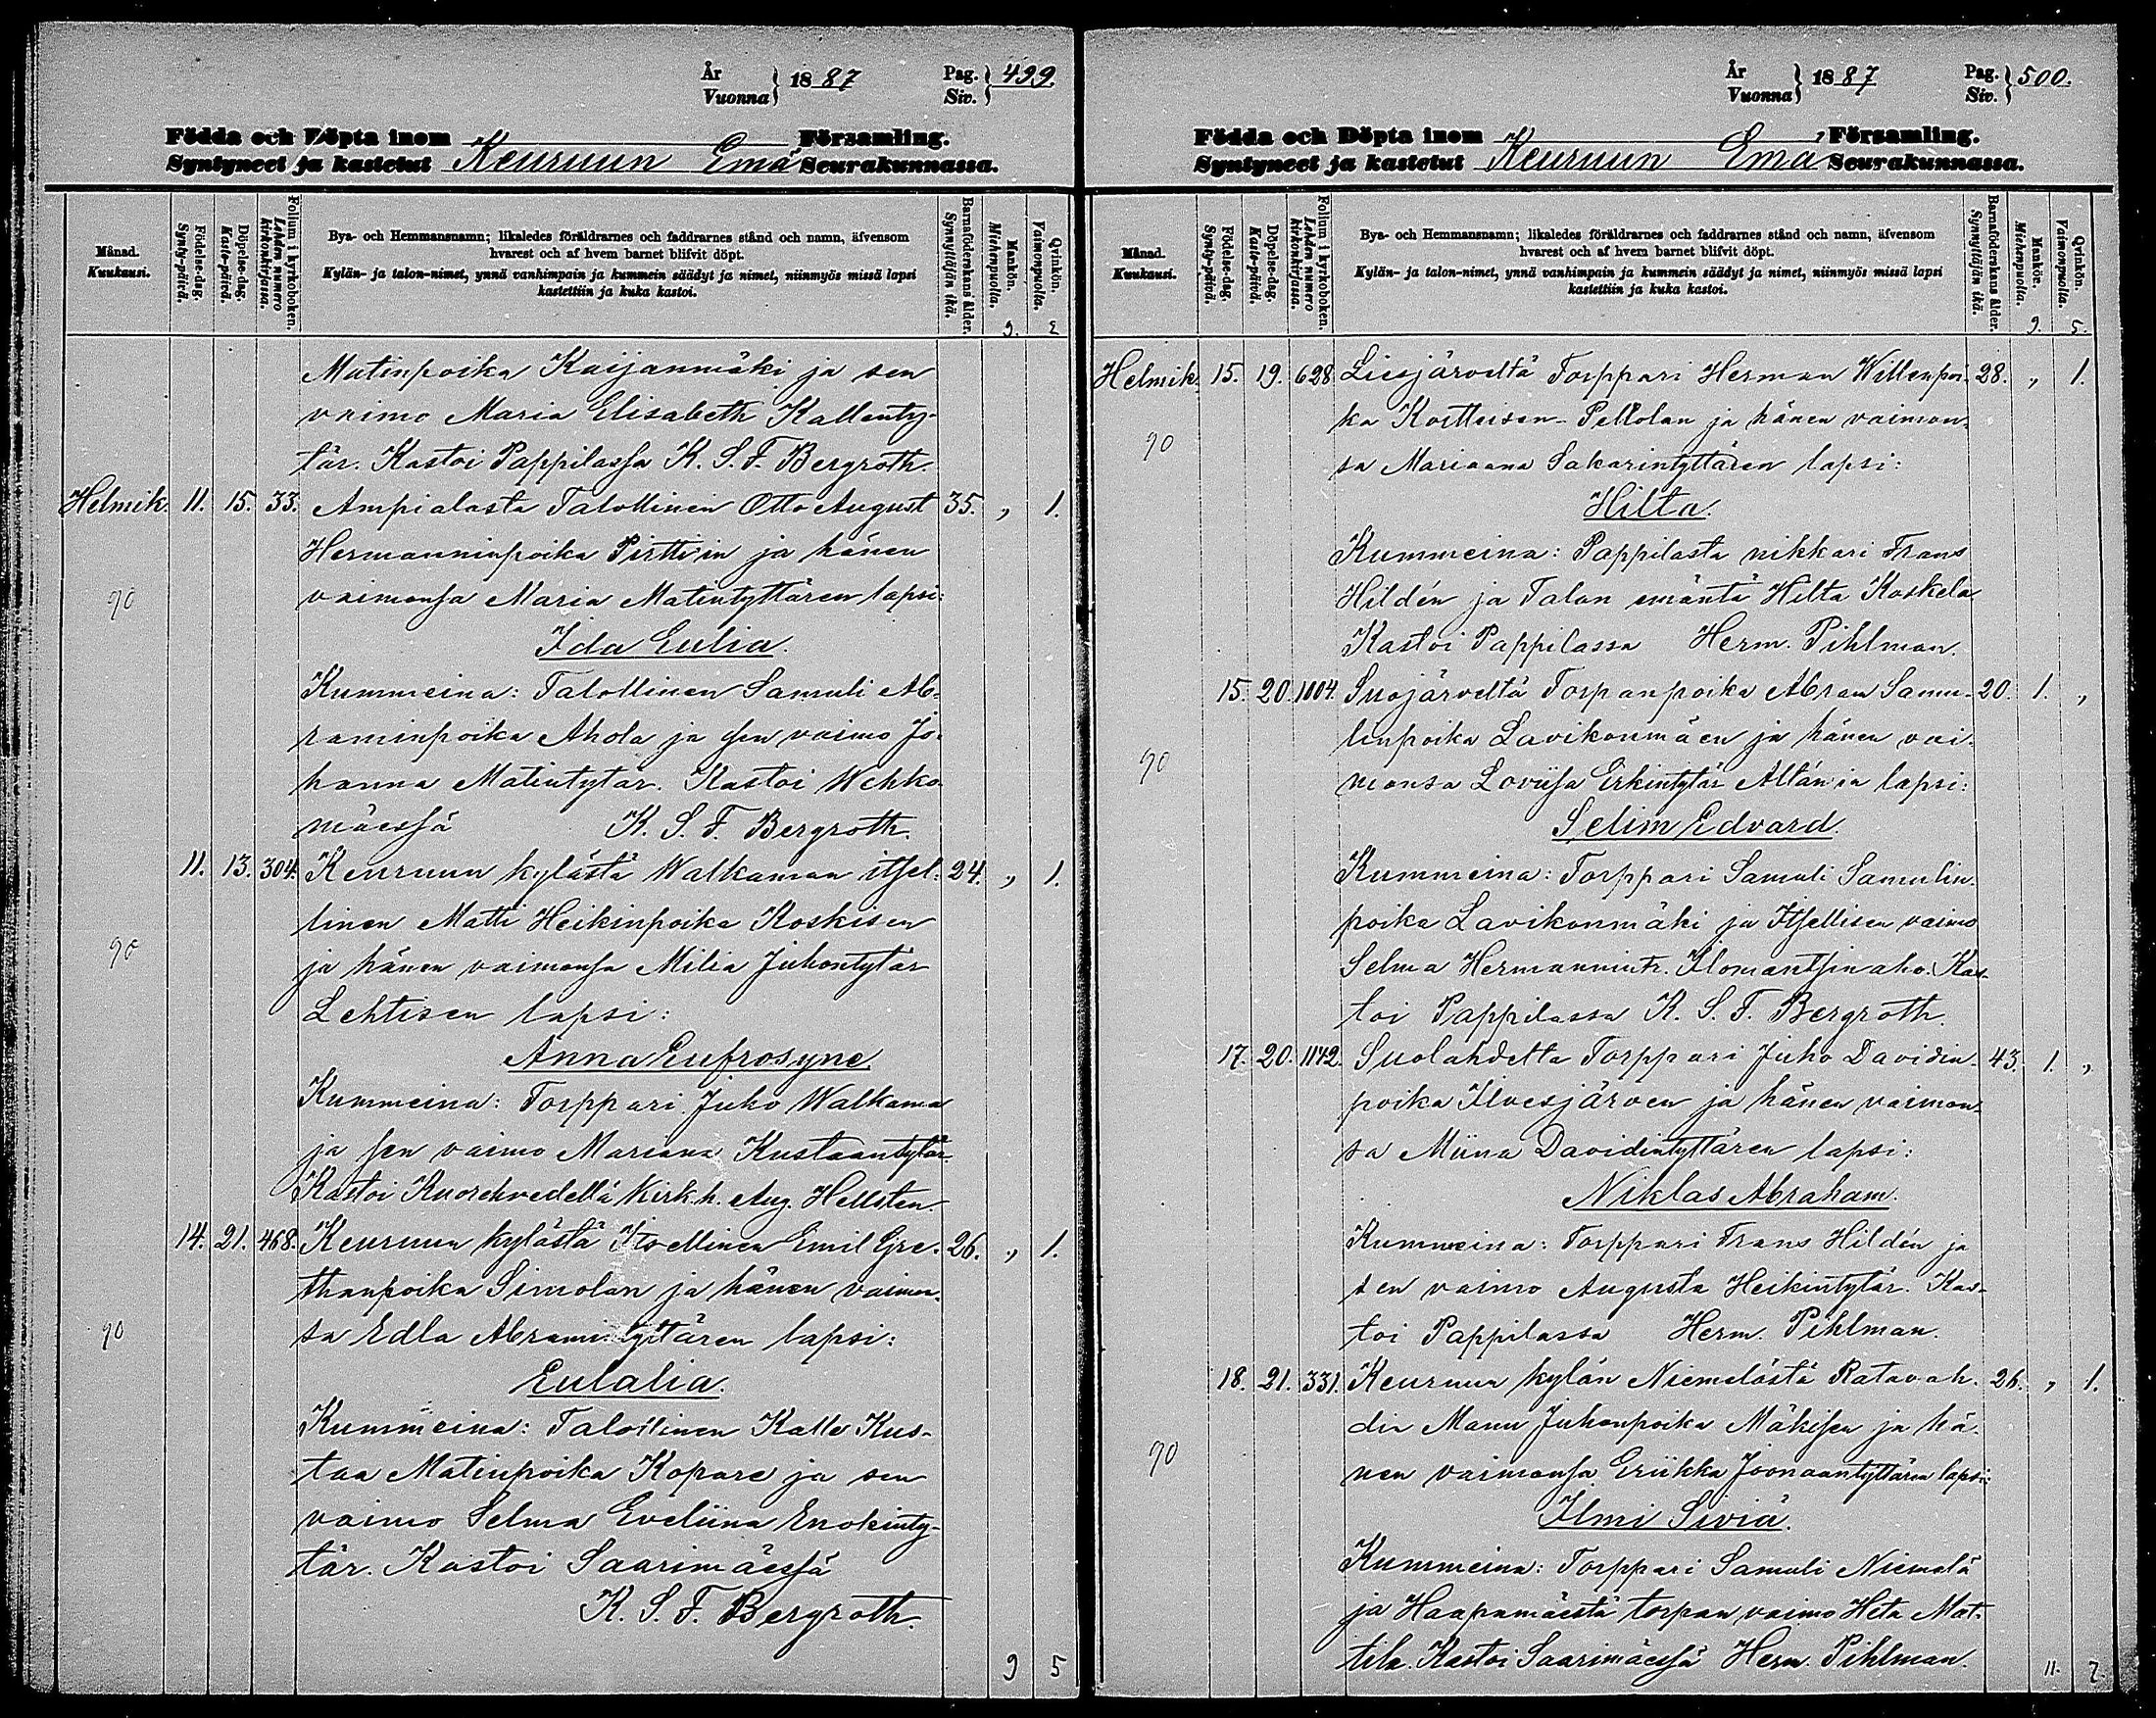 År
Vuonna } 1887 Pag.
Siv. } 499.
Födda och Döpta inom Församling.
Syntyneet ja kastetut Keuruun Emä Seurakunnassa.
Månad.
Kuukausi.
Födelse-dag.
Synty-päivä.
Döpelse-dag.
Kaste-päivä.
Folium i kyrkoboken.
Lehden numero
kirkonkirjassa.
Bya- och Hemmansnamn; likaledes föräldrarnes och faddrarnes stånd och namn, äfvensom
hvarest och af hvem barnet blifvit döpt.
Kylän- ja talon-nimet, ynnä vanhimpain ja kummein säädyt ja nimet, niinmyös missä lapsi
kastettiin ja kuka kastoi.
Barnaföderskans ålder.
Synnyttäjän ikä.
Mankön.
Miehenpuolta.
Qvinkön.
Vaimonpuolta.
9. 2
Matinpoika Kaijanmäki ja sen
vaimo Maria Elisabeth Kallenty-
tär. Kastoi Pappilassa K. S. F. Bergroth.
Helmik. 11. 15. 33. Ampialasta Talollinen Otto August 35. „ 1.
Hermanninpoika Pirttiin ja hänen
90 vaimonsa Maria Matintyttären lapsi:
Ida Eulia.
Kummeina: Talollinen Samuli Ab-
raminpoika Ahola ja sen vaimo Jo-
hanna Matintytär. Kastoi Wehko-
mäessä K. S. F. Bergroth.
11. 13. 304. Keuruun kylästä Walkaman itsel- 24. „ 1.
linen Matti Heikinpoika Koskisen
90 ja hänen vaimonsa Milia Juhontytär
Lehtisen lapsi:
Anna Eufrosyne.
Kummeina: Torppari Juho Walkama
ja sen vaimo Mariana Kustaantytär.
Kastoi Kuorehvedellä Kirkh. Aug. Hellsten
14. 21. 468. Keuruun kylästä Itsellinen Emil Gre- 26. „ 1.
thanpoika Simolan ja hänen vaimon-
90 sa Edla Abramintyttären lapsi:
Eulalia.
Kummeina: Talollinen Kalle Kus-
taa Matinpoika Kopare ja sen
vaimo Selma Eveliina Enokinty-
tär. Kastoi Saarimäessä
K. S. F. Bergroth.
9 5
År
Vuonna } 1887 Pag.
Siv. } 500.
Födda och Döpta inom Församling.
Syntyneet ja kastetut Keuruun Emä Seurakunnassa.
Månad.
Kuukausi.
Födelse-dag.
Synty-päivä.
Döpelse-dag.
Kaste-päivä.
Folium i kyrkoboken.
Lehden numero
kirkonkirjassa.
Bya- och Hemmansnamn; likaledes föräldrarnes och faddrarnes stånd och namn, äfvensom
hvarest och af hvem barnet blifvit döpt.
Kylän- ja talon-nimet, ynnä vanhimpain ja kummein säädyt ja nimet, niinmyös missä lapsi
kastettiin ja kuka kastoi.
Barnaföderskans ålder.
Synnyttäjän ikä.
Mankön.
Miehenpuolta.
Qvinkön.
Vaimonpuolta.
9. 5.
Helmik. 15. 19. 628. Liesjärveltä Torppari Herman Willenpoi- 28. „ 1.
ka Koitteisen-Pellolan ja hänen vaimon-
90 sa Mariaana Sakarintyttären lapsi:
Hilta.
Kummeina: Pappilasta nikkari Frans
Hildén ja Talon emäntä Hilta Koskela
Kastoi Pappilassa Herm. Pihlman.
15. 20. 1004. Suojärveltä Torpanpoika Abram Samu- 20. 1. „
linpoika Lavikonmäen ja hänen vai-
90 monsa Loviisa Erkintytär Altánin lapsi:
Selim Edvard.
Kummeina: Torppari Samuli Samulin-
poika Lavikonmäki ja Itsellisen vaimo
Selma Hermannintr. Ilomantsinaho. Kas-
toi Pappilassa K. S. F. Bergroth.
17. 20. 1142. Suolahdelta Torppari Juho Davidin- 43. 1. „
poika Ilvesjärven ja hänen vaimon-
sa Miina Davidintyttären lapsi:
Niklas Abraham.
Kummeina: Torppari Frans Hildén ja
sen vaimo Augusta Heikintytär. Kas-
toi Pappilassa Herm. Pihlman.
18. 21. 331. Keuruun kylän Niemelästä Ratavah- 26. „ 1.
din Manu Juhonpoika Mäkisen ja hä-
90 nen vaimonsa Eriikka Joonaantyttären lapsi:
Ilmi Siviä.
Kummeina: Torppari Samuli Niemelä
ja Haapamäestä torpan vaimo Heta Mat-
tila. Kastoi Saarimäessä Herm. Pihlman.
11. 7.